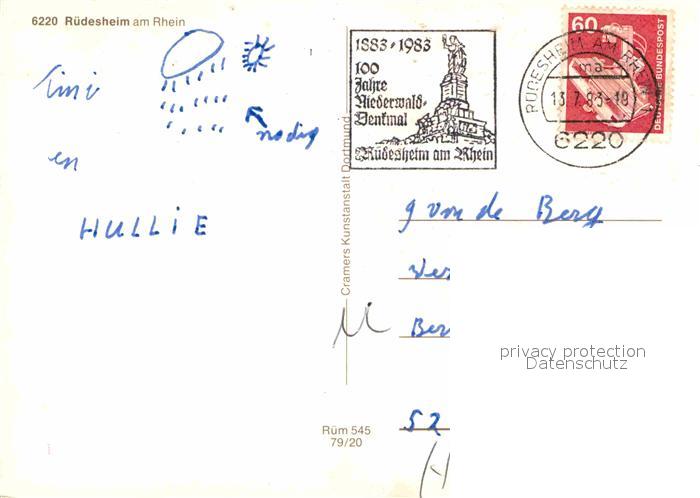 6220 Rüdesheim am Rhein
Tini
nodig
en
HULLIE
1883 - 1983
100
Jahre
Niederwald-
Denkmal
Rüdesheim am Rhein
RÜDESHEIM AM RHEIN
ma
13.7.83-18
6220
60
DEUTSCHE BUNDESPOST
Cramers Kunstanstalt Dortmund
g van de Berg
Ber
52
privacy protection
Datenschutz
Rüm 545
79/20